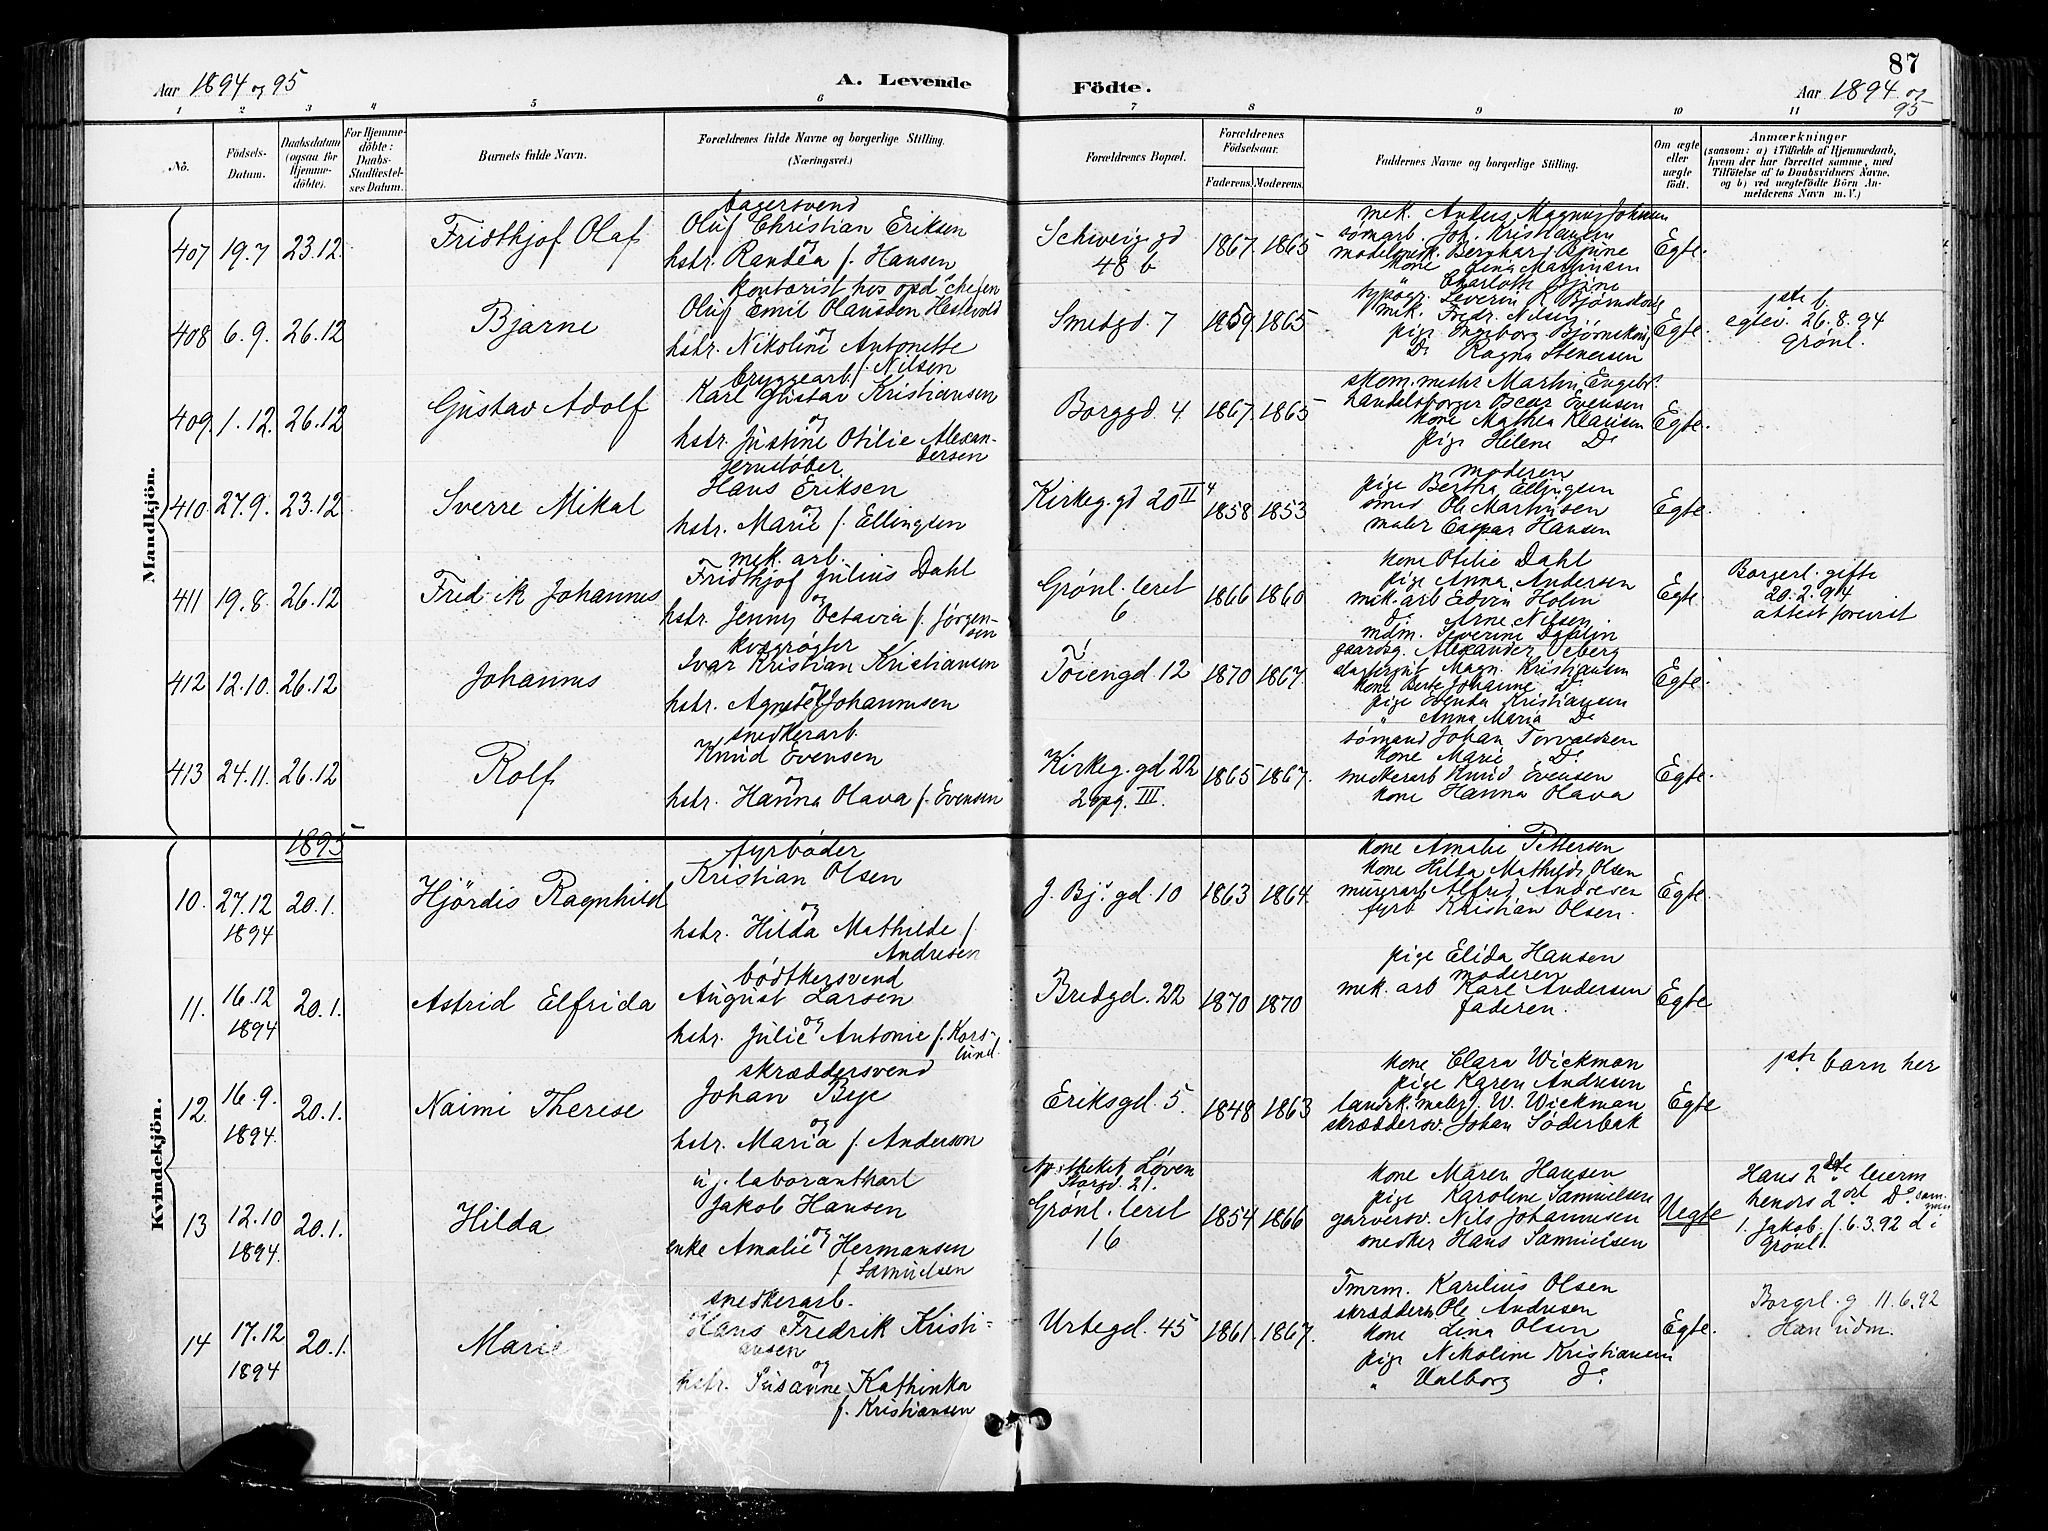 87
Aar 1894 og 95
A. Levende
Födte.
Aar 1894 og 95
1 2 3 4 5 6 7 8 9 10 11
No.
Födsels-Datum.
Daabsdatum (ogsaa for Hjemme-döbte).
For Hjemme-döbte: Daabs-Stadfæstel-ses Datum.
Barnets fulde Navn.
Forældrenes fulde Navne og borgerlige Stilling. (Næringsvei.)
Forældrenes Bopæl.
Forældrenes Födselsaar.
Faderens. Moderens.
Faddernes Navne og borgerlige Stilling.
Om ægte eller uægte födt.
Anmærkninger
(saasom: a) i Tilfælde af Hjemmedaab, hvem der har forrettet samme, med Tilföielse af to Daabsvidners Navne, og b) ved uægtefödte Börn An-melderens Navn m.V.)
Mandkjön.
407 19.7 23.12. Fridthjof Olaf
bagersvend
Oluf Christian Eriksen
og
hstr. Randea f. Hansen
Schweig.gd
48 b
1867. 1865
mek. Anders Magnus Johnsen
sømarb. Joh. Kristiansen
kone Lina Martinsen
" Charlotte Bjune
Egte.
408 6.9. 26.12 Bjarne
kontorist hos opd.chefen
Oluf Emil Olaussen Hestvold
og
hstr. Nikoline Antonette
f. Nilsen
Smedgd. 7
1859 1865
typogr. Severin R Bjørnskau
mek. Fredr. Nilsen
pige Ingeborg Bjørnskau
Do Ragna Stenersen
Egte.
1ste b.
egtev. 26.8.94
Grønl.
409. 1.12. 26.12 Gustav Adolf
bryggearb.
Karl Gustav Kristiansen
og
hstr. Justine Otilie Alexan-
dersen
Borggd. 4
1867. 1865
skom.mestr Martin Engebr.
handelsborger Oscar Evensen
kone Mathea Klausen
pige Helene Do
Egte.
410 27.9. 23.12 Sverre Mikal
jernstøber
Hans Eriksen
og
hstr. Marie f. Ellingsen
Kirkeg.gd 20 II 4
1858 1853
moderen
pige Bertha Ellingsen
smed Ole Martinsen
maler Caspar Hansen
Egte.
411 19.8. 26.12 Fredrik Johannes
mek. arb.
Fridthjof Julius Dahl
og
hstr. Jenny Octavia f. Jørgen-
sen
Grønl. leret
6
1866 1860
kone Otilie Dahl
pige Anna Andersen
mek.arb Edvin Holm
Do Arne Nilsen
Egte.
Borgerl. gifte
20.2.94
attest forevist
412 12.10. 26.12 Johannes
kvægrøgter
Ivar Kristian Kristiansen
og
hstr. Agnete f Johannesen
Tøiengd. 12
1870 1867.
mdm. Severine Dahlin
gaardsg. Alexander Seberg
Magn. Kristiansen
kone Berte Johanne Do
pige Kristiansen
" Anna Maria Do
Egte.
413 24.11. 26.12 Rolf
snedkerarb.
Knud Evensen
og
hstr. Hanna Olava f. Evensen
Kirkeg.gd 22
2 opg. III.
1865 1867.
sømand Johan Torvaldsen
kone Marie Do
snedkerarb Knud Evensen
kone Hanna Olava
Egte.
Kvindekjön.
1895
10. 27.12 1894 20.1. Hjördis Ragnhild
fyrbøder
Kristian Olsen
og
hstr. Hilda Mathilde f.
Andresen
J. Bj.s gd. 10
1863 1864.
kone Amalie Pettersen
kone Hilda Mathilde Olsen
murerarb Alfrid Andresen
fyrb Kristian Olsen.
Egte.
11. 16.12 1894 20.1. Astrid Elfrida
bødtkersvend
August Larsen
og
hstr. Julie Antonie f. Kors-
lund.
Bredgd. 22
1870 1870
pige Elida Hansen
moderen
mek. arb Karl Andersen
faderen.
Egte
12. 16.9. 1894. 20.1. Naimi Therese
skræddersvend
Johan Bye
og
hstr. Maria f. Anderson
Eriksgd. 5.
1848 1863
kone Clara Wickman
pige Karen Andresen
landsk.maler J. W. Wickman
skræddersv. Johan Söderbak
Egte
1ste barn her
13 12.10 1894. 20.1. Hilda
uj. laboranthart
Jakob Hansen
og
enke Amalie Hermansen
f. Samuelsen
Apotheket Løven
Storgd. 21.
Grønl. leret
16
1854 1866
kone Maren Hansen
pige Karoline Samuelsen
garversv. Nils Johannesen
snedker Hans Samuelsen
Uegte
Hans 2det leierm
hendes 2det Do sam-
men
1. Jakob f. 6.3.92 d i
Grønl.
14 17.12 1894 20.1. Marie
snedkerarb.
Hans Fredrik Kristi-
ansen
og
hstr. Susanne Kathinka
f. Kristiansen
Urtegd. 45
1861. 1867.
Tmrm. Karelius Olsen
skrædders. Ole Andresen
kone Lina Olsen
pige Nikoline Kristiansen
" Valborg Do
Egte.
Borgrl. g 11.6.92
Han udm.